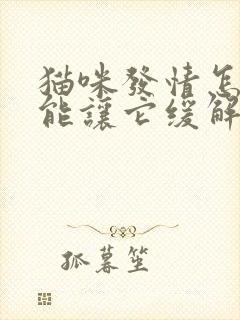 猫咪發情怎
能讓它緩解
孤暮笙